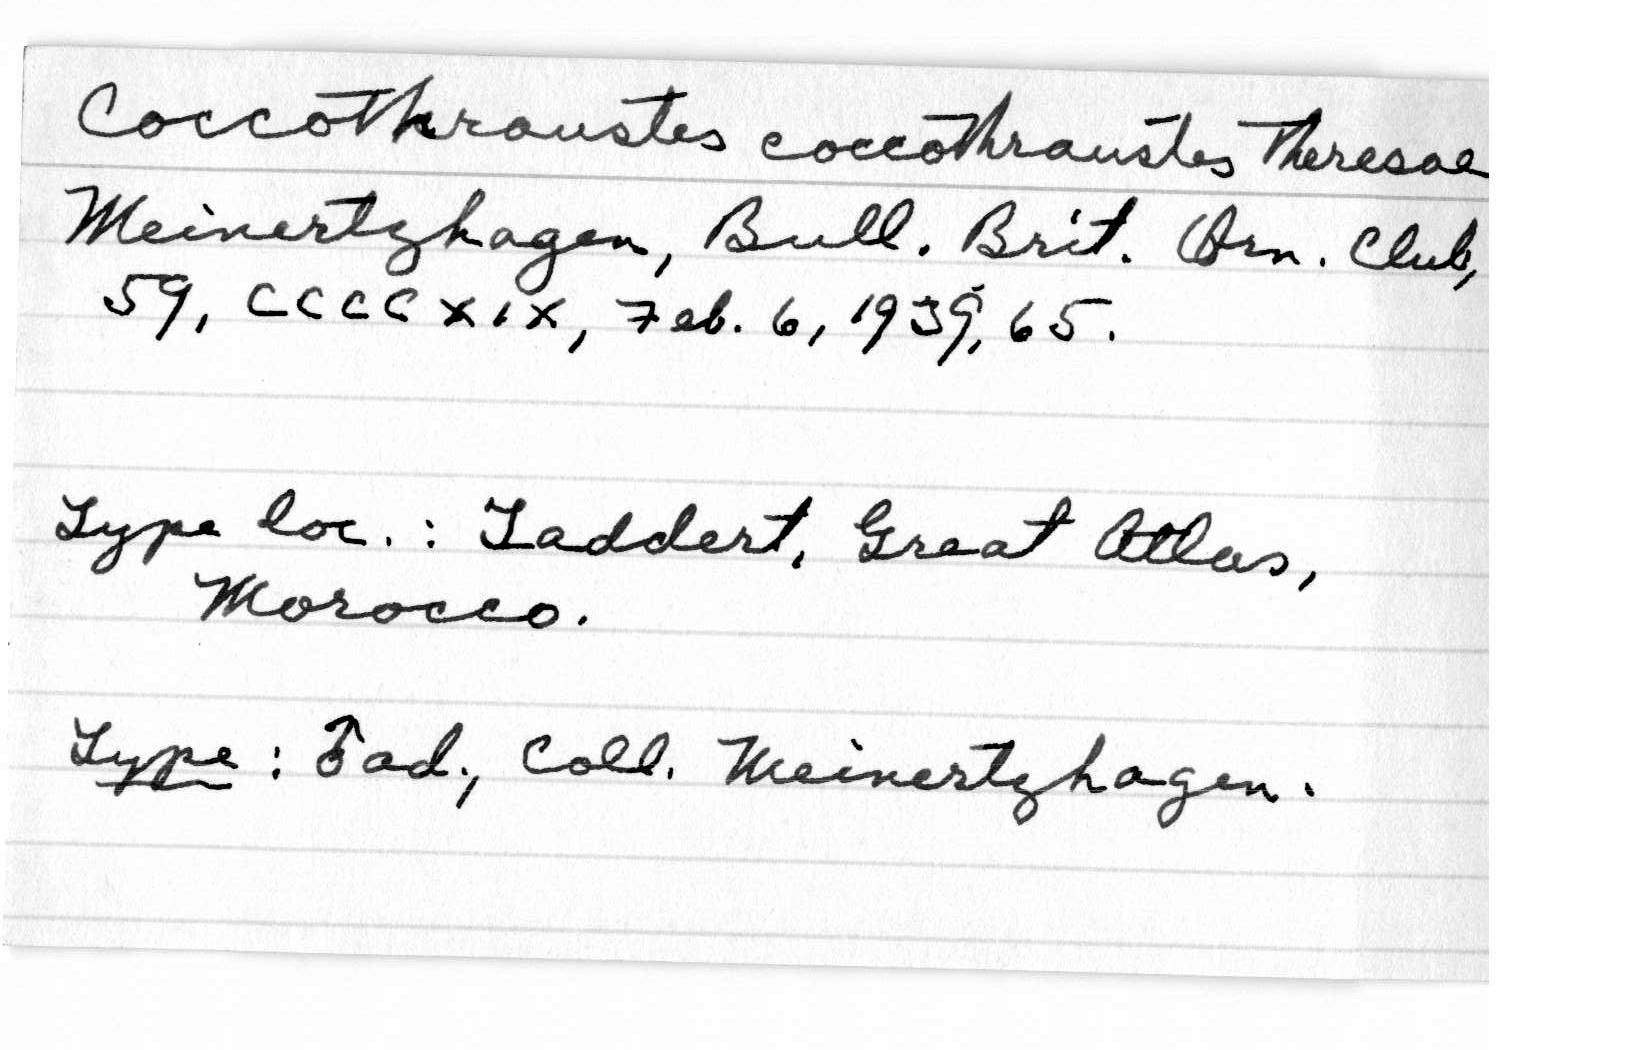 Coccothraustes coccothraustes Theresae
Meinertzhagen, Bull. Brit. Orn. Club,
59, CCCCXIX, Feb. 6, 1939, 65.
Type loc. : Taddert, Great Atlas,
Morocco.
Type : ♂ ad., Coll. Meinertzhagen.